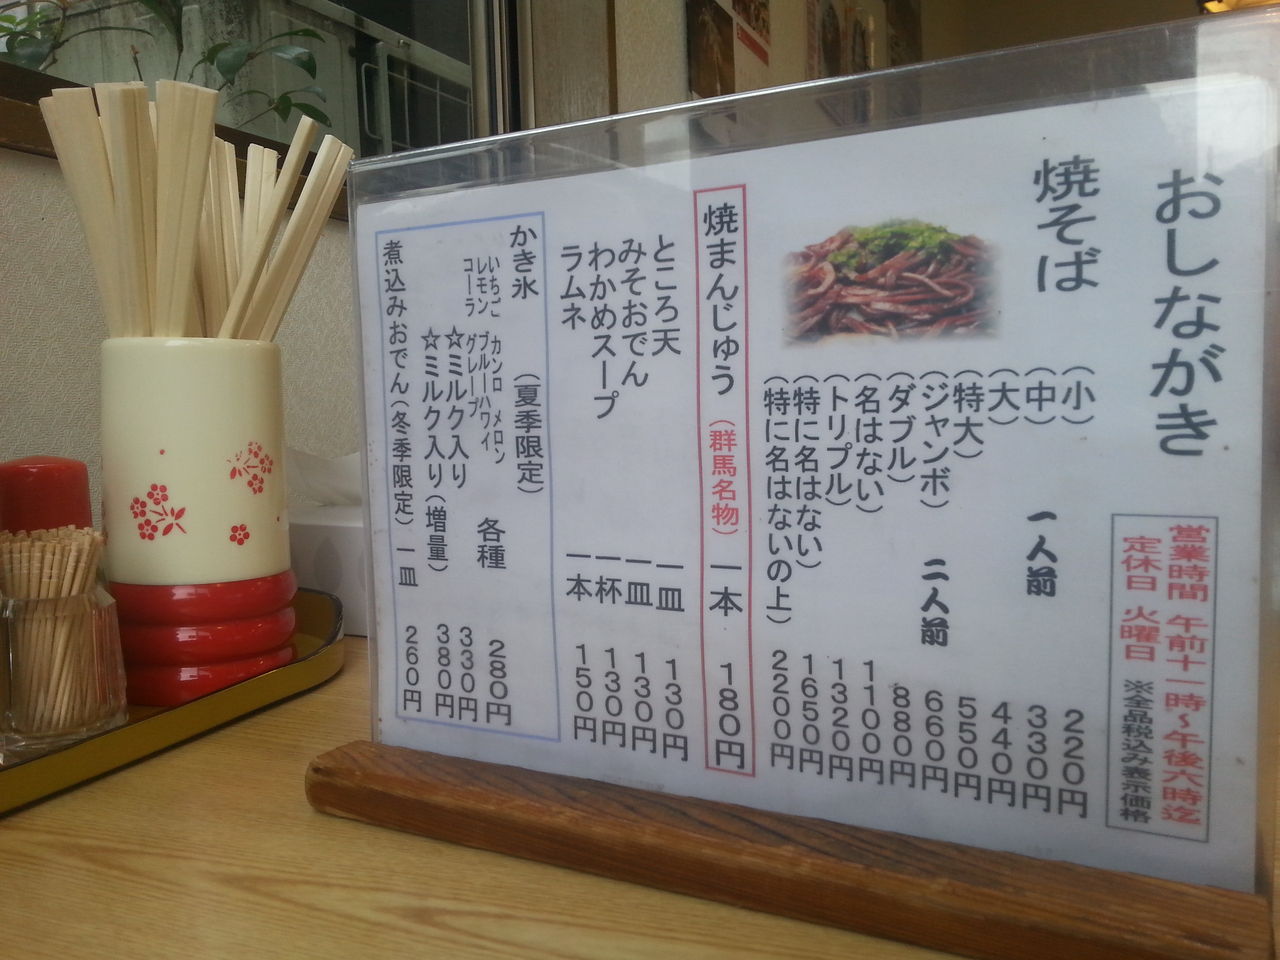 おしながき
営業時間 午前十一時～午後六時迄
定休日 火曜日 ※全品税込み表示価格
焼そば
(小) 220円
(中) 一人前 330円
(大) 440円
(特大) 550円
(ジャンボ) 二人前 660円
(ダブル) 880円
(名はない) 1100円
(トリプル) 1320円
(特に名はない) 1650円
(特に名はないの上) 2200円
焼まんじゅう (群馬名物) 一本 180円
ところ天 一皿 130円
みそおでん 一皿 130円
わかめスープ 一杯 130円
ラムネ 一本 150円
かき氷 (夏季限定)
いちご カンロ メロン 各種 280円
レモン ブルーハワイ
コーラ グレープ
☆ミルク入り 330円
☆ミルク入り(増量) 380円
煮込みおでん(冬季限定) 一皿 260円